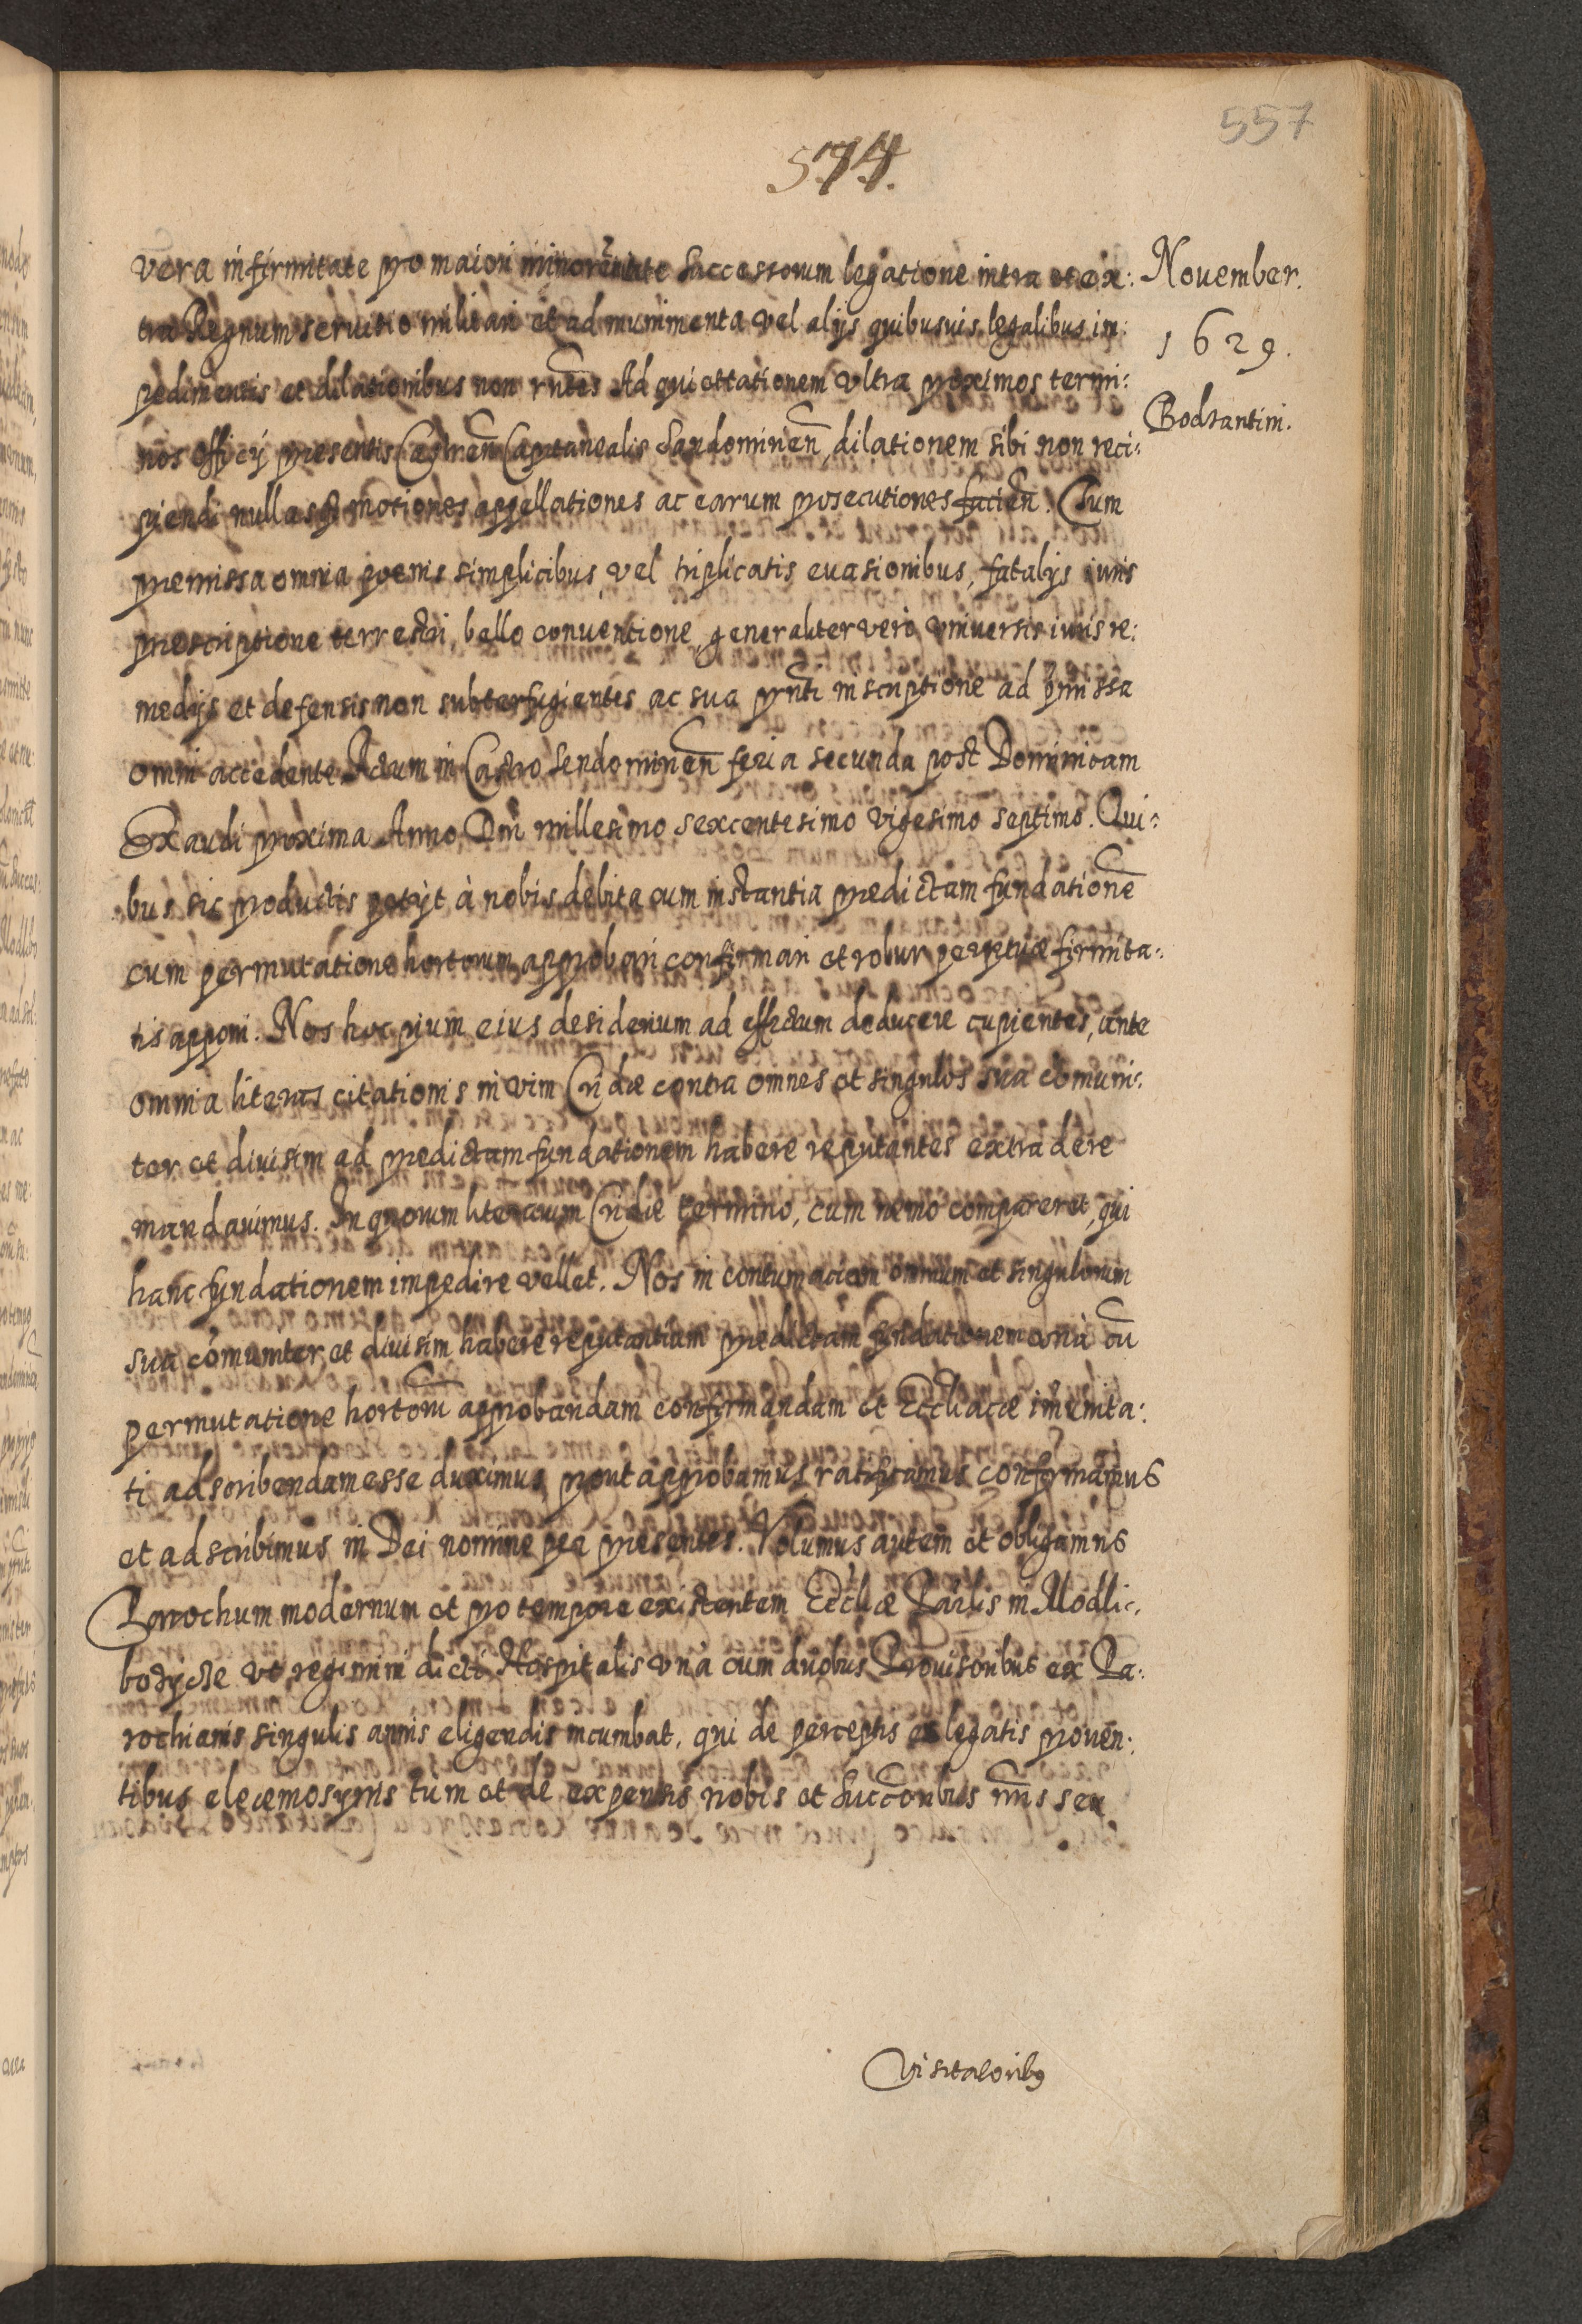 557
574.
November.
1629.
Bodzantini.
vera infirmitate pro maiori minorennitate Successorum legatione intra et ex:
tra Regnum servitio militari et ad munimenta vel alijs quibusvis legalibus im:
pedimentis et dilationibus non rntes Ad quiettationem vltra proximos termi:
nos officij presentis Castren Capitanealis Sandomirien, dilationem sibi non reci:
piendi nullasq3 motiones appellationes ac earum prosecutiones facien. Cum
premissa omnia poenis simplicibus, vel triplicatis euasionibus, fatalijs iuris
prescriptione terrestri, bello conuentione, generaliter vero vniuersis iuris re:
medijs et defensis non subterfugientes ac sua prnti inscriptione ad prmissa
omni accedente Actum in Castro Sendomirien feria secunda post Dominicam
Exaudi proxima Anno Dni millesimo sexcentesimo vigesimo septimo. Qui:
bus sic productis petijt à nobis debita cum instantia predictam fundatione
cum permutatione hortorum approbari confirmari et robur perpetuæ firmita:
tis apponi. Nos hoc pium eius desiderium ad effectum deducere cupientes, ante
omnia literas citationis in vim Cridæ contra omnes et singulos sua comuni:
ter et diuisim ad predictam fundationem habere reputantes extradere
mandauimus. In quorum literarum Cridæ termino, cum nemo compareret, qui
hanc fundationem impedire vellet. Nos in contumaciam omnium et singulorum
sua comuniter et diuisim habere reputantium predictam fundationem vnà cu
permutatione hortoru approbandam confirmandam et Ecclicæ imunita:
ti adscribendam esse duximus, prout approbamus ratificamus confirmamus
et adscribimus in Dei nomine per presentes. Volumus autem et obligamus
Parochum modernum et pro tempore existentem Ecclæ Parlis in Modli:
bozycze vt regimini dicti Hospitalis vnà cum duobus Prouisoribus ex Pa:
rochianis singulis annis eligendis incumbat, qui de perceptis ex legatis prouen:
tibus eleemosynis tum et de expensis nobis et Succoribus nris seu
Visitatorib9